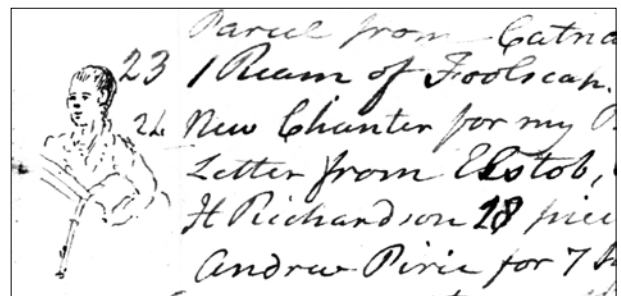 Parcel from Catri
23 1 Ream of Foolscap.
24 New Chanter for my
Letter from Elstob,
H Richardson 28 piec
Andrew Pirie for 7